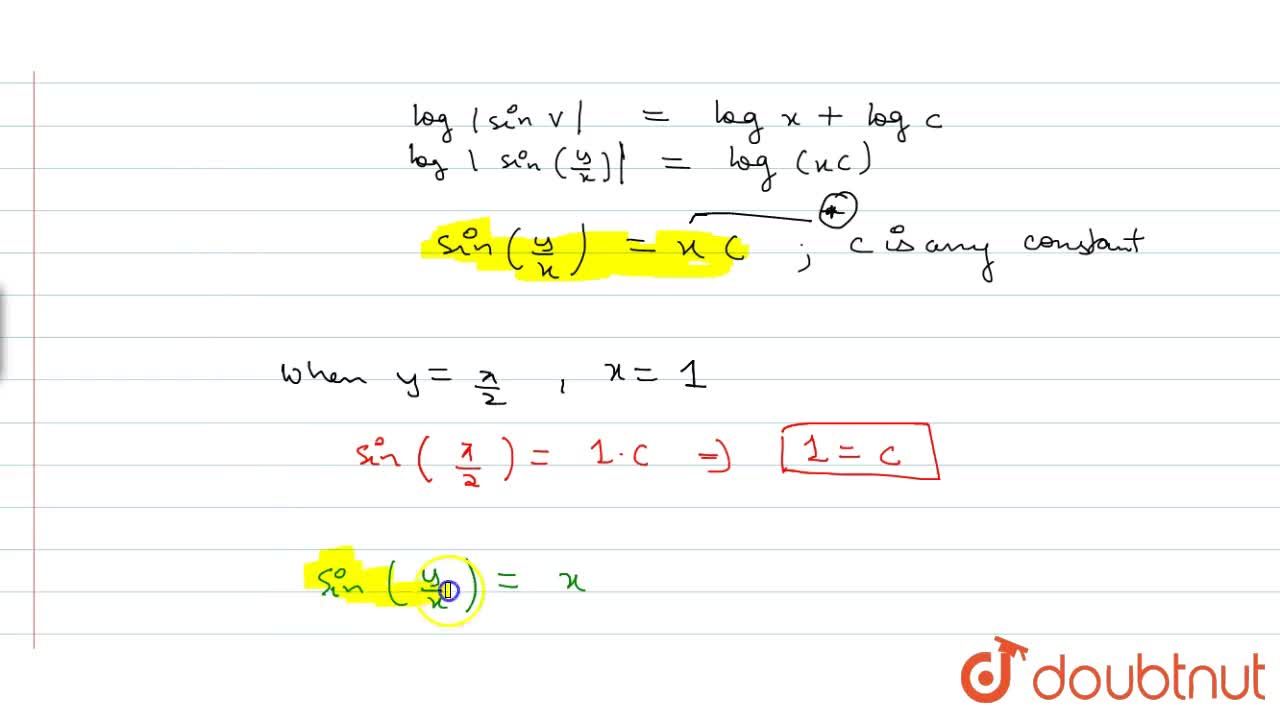 log |sin v| = log x + log c
log | sin(y/x)| = log (xc)
sin(y/x) = x c ; c is any constant
when y = π/2 , x = 1
sin(π/2) = 1·c ⇒ 1 = c
sin(y/x) = x
doubtnut